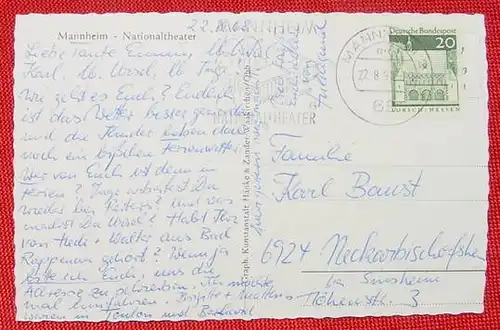 Mannheim - Nationaltheater
22.8.68
Liebe Tante Emma, lb. Onkel
Karl, lb. Ursel, lb. Inge!
Wie geht es Euch? Endlich
ist das Wetter besser geworden
und die Kinder haben doch
noch ein bißchen Ferienwetter.
Wer von Euch ist denn in
Ferien? Inge arbeitest Du
wieder bei und was
machst Du Ursel? Habt Ihr
von Hede + Walter aus Bad
Rappenau gehört? Wenn ja
bitte ich Euch, uns die
Adresse zu schreiben. Ich möchte
mal hinfahren. Brigitte +
waren in und
MANNHEIM
THEATER
Graph. Kunstanstalt Hänke & Zander, Waldkirchen/Opb.
MANN
22.8.
68
Deutsche Bundespost
20
LORSCH/HESSEN
Familie
Karl Baust
6924 Neckarbischofsheim
bei Sinsheim
Höhenstr. 3